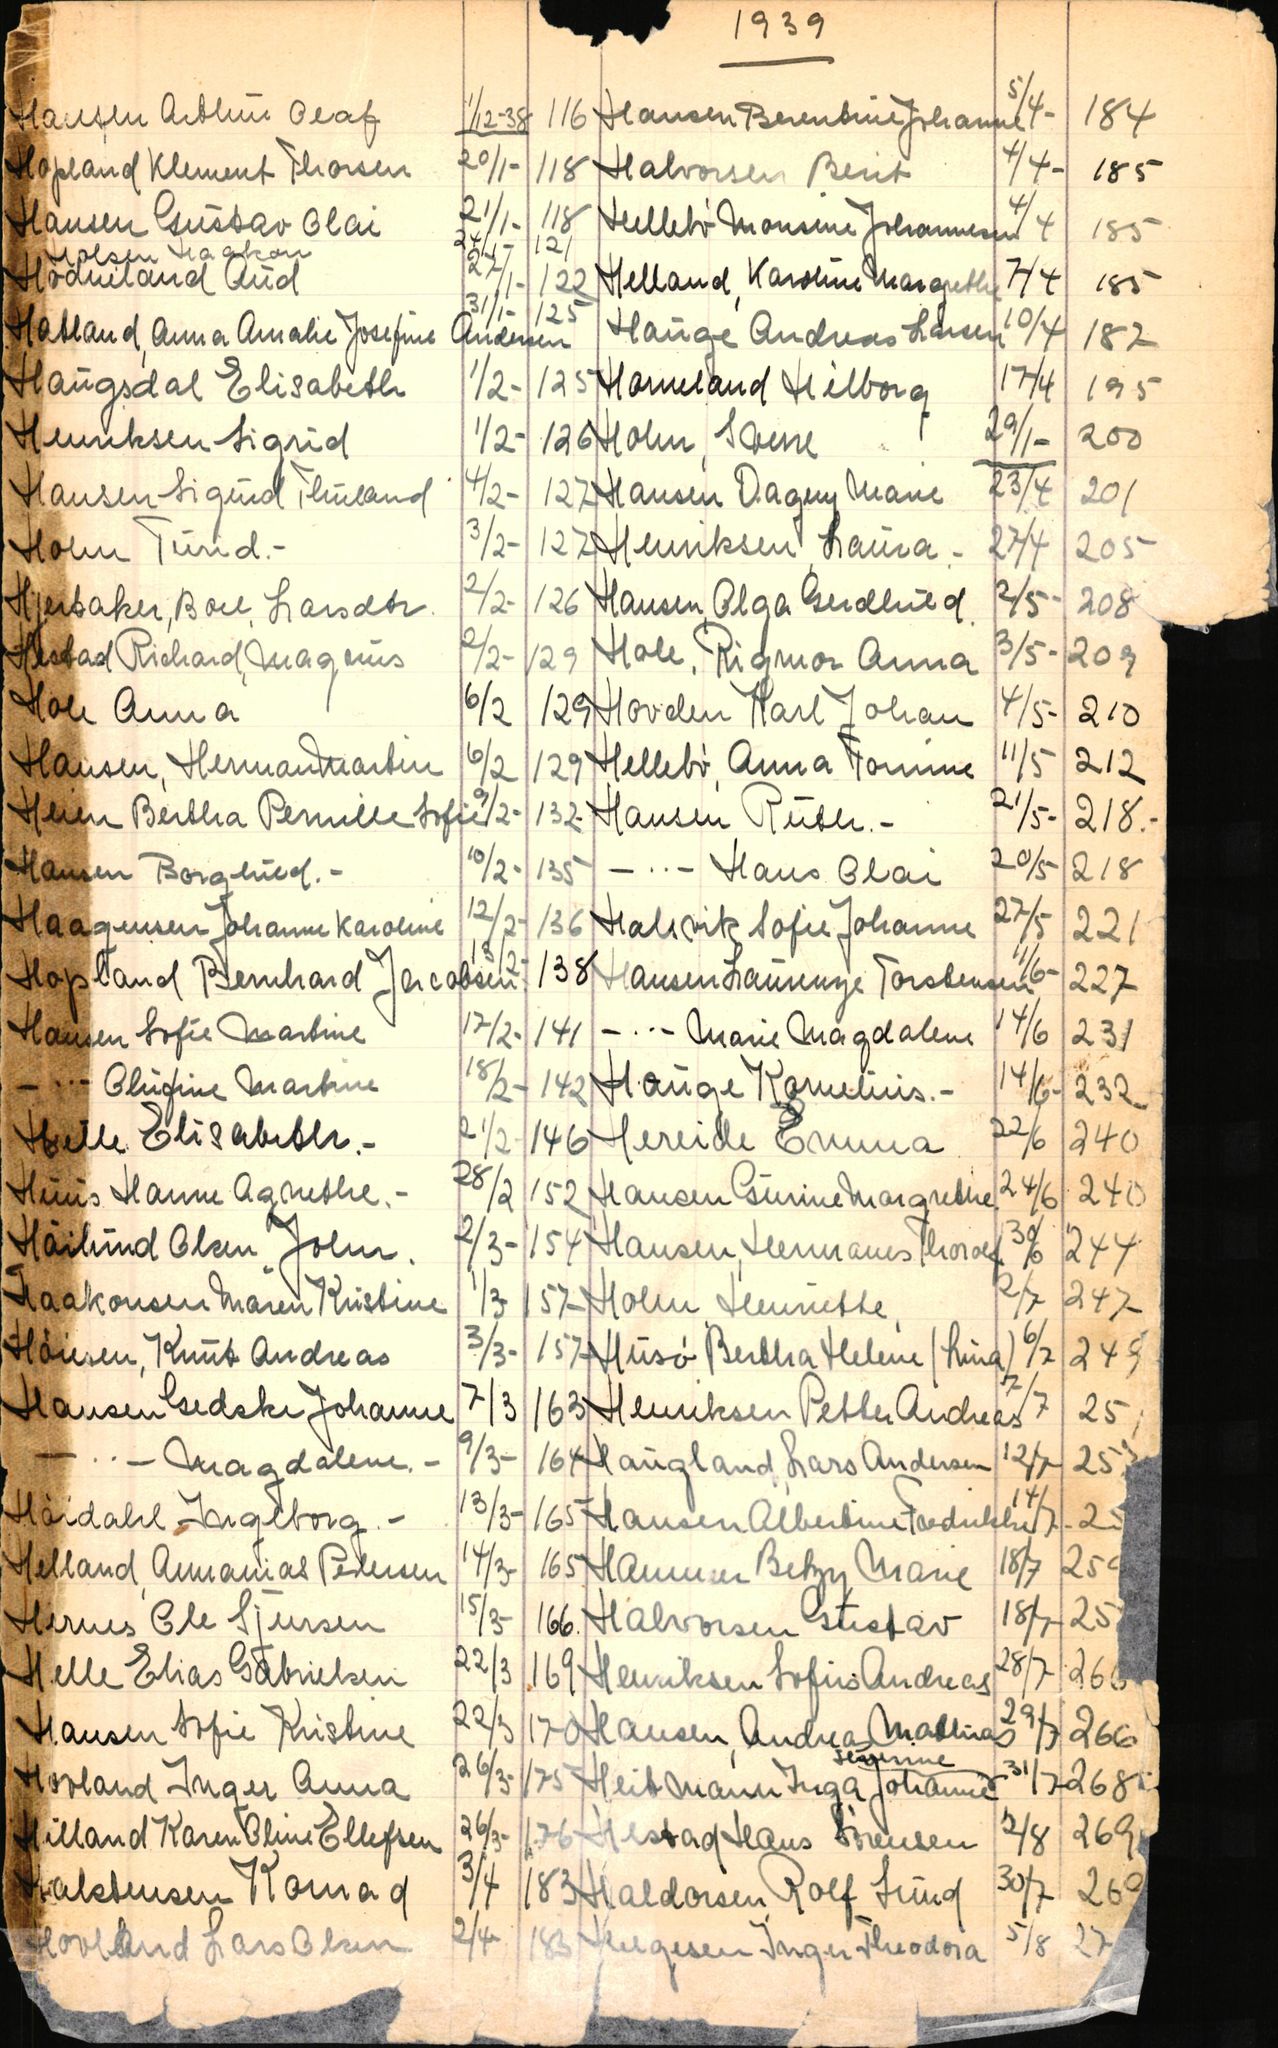 1939
Hansen Arthur Olaf 1/12-38 116
Hopland Klement Thorsen 20/1- 118
Hansen Gustav Olai 21/1- 118
Holsen Haakon 24/1- 121
Hodneland Aud 27/1- 122
Hatland, Anna Amalie Josefine Andersen 31/1- 125
Haugsdal Elisabeth 1/2- 125
Henriksen Sigrid 1/2- 126
Hansen Sigurd Thuland 4/2- 127
Holm Turid.- 3/2- 127
Hjertaker, Boel Larsdtr. 2/2- 126
Hestad Richard Magnus 2/2- 129
Hole Anna 6/2 129
Hansen, Herman Martin 6/2 129
Heien Bertha Pernille Sofie 9/2- 132
Hansen Borghild.- 10/2- 135
Haagensen Johanne Karoline 12/2- 136
Hopland Bernhard Jacobsen 13/2- 138
Hansen Sofie Martine 17/2- 141
-..- Olufine Martine 18/2- 142
Helle Elisabeth.- 21/2- 146
Huus Hanne Agnethe.- 28/2 152
Håilund Olsen John. 2/3- 154
Haakonsen Maren Kristine 1/3 157
Höiesen, Knut Andreas 3/3- 157
Hansen Gedske Johanne 7/3 163
-..- Magdalene.- 9/3- 164
Höidahl Ingeborg.- 13/3- 165
Helland, Annanias Pedersen 14/3- 165
Hernes Ole Sjursen 15/3- 166.
Helle Elias Gabrielsen 22/3 169
Hansen Sofie Kristine 22/3 170
Hovland Inger Anna 26/3- 175
Hilland Karen Oline Ellefsen 26/3- 176
Halstensen Konrad 3/4 183
Hovland Lars Olsen 2/4- 183
Hansen Berentine Johanne 5/4- 184
Halvorsen Berit 4/4- 185
Hellebö Monsine Johannesen 4/4 185
Helland, Karoline Margrethe 7/4 185
Hauge Andreas Larsen 10/4 182
Horneland Hilborg 17/4 195
Holm, Sverre 29/1- 200
Hansen Dagny Marie 23/4 201
Henriksen Laura.- 27/4 205
Hansen, Olga Gerdhild. 2/5- 208
Hole, Rigmor Anna 3/5- 209
Hovden Karl Johan 4/5- 210
Hellebö, Anna Tomine 11/5 212
Hansen Ruth.- 21/5- 218.-
-..- Hans Olai 20/5 218
Halsvik Sofie Johanne 27/5 221
Hansen Laurenze Torstensen 11/6- 227
-..- Marie Magdalene 14/6 231
Hauge Kornelius.- 14/6- 232
Hereide Emma 22/6 240
Hansen Gurine Margrethe 24/6 240
Hansen, Hermanus Thorolf 30/6 244
Holm, Henriette, 2/7 247
Husö Bertha Helene (Lina) 6/7 249
Henriksen Petter Andreas 7/7 25
Haugland, Lars Andersen 12/7 253
Hansen Albertine Fredrikke 14/7- 25
Hammer Betzy Marie 18/7 25
Halvorsen Gustav 18/7- 25
Henriksen Sofus Andreas 28/7 266
Hansen, Andrea Mathias 29/7 266
Heitmann Inga Johanne 31/7 268
Hestad Hans Sörensen 2/8 269
Haldorsen, Rolf Lund 30/7 269
Helgesen Inger Theodora 5/8 27